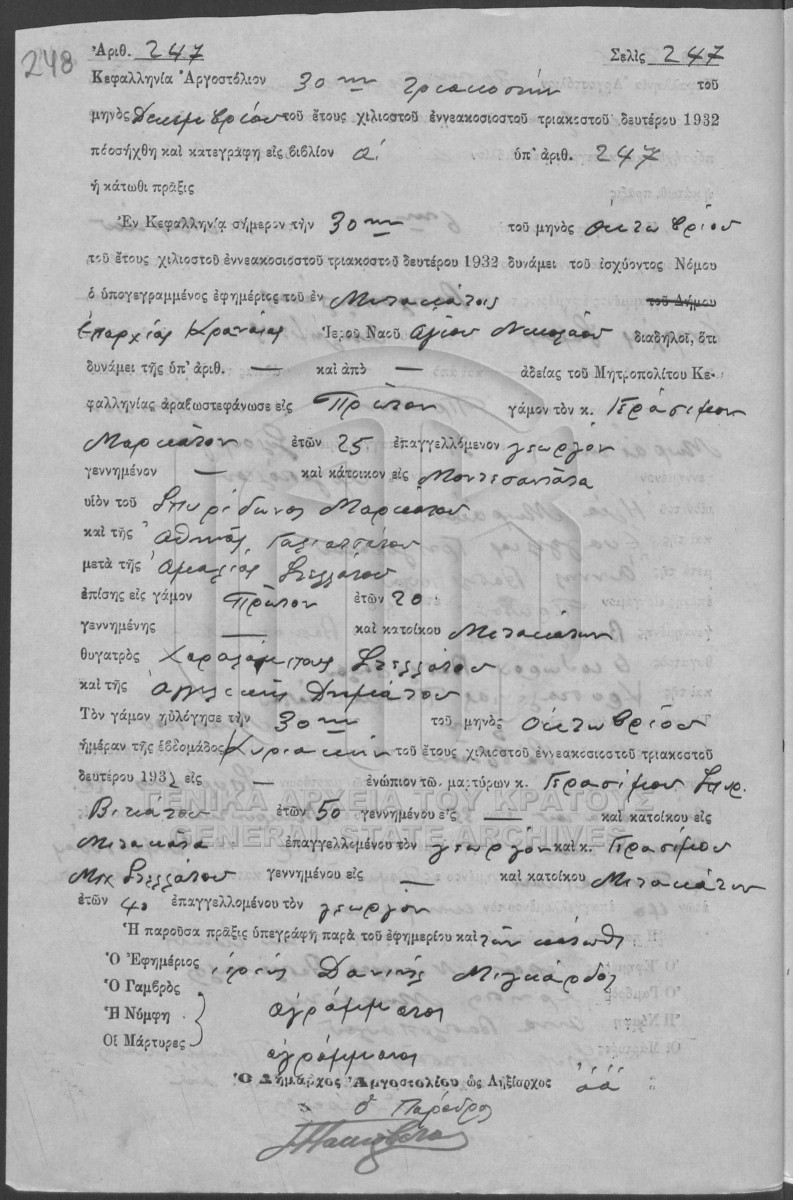 248
Ἀριθ. 247 Σελὶς 247
Κεφαλληνία Ἀργοστόλιον 30ην τριακοστήν τοῦ
μηνὸς Δεκεμβρίου τοῦ ἔτους χιλιοστοῦ ἐννεακοσιοστοῦ τριακοστοῦ δευτέρου 1932
πέοσήχθη καὶ κατεγράφη εἰς βιβλίον α΄ ὑπ' ἀριθ. 247
ἡ κάτωθι πρᾶξις
Ἐν Κεφαλληνίᾳ σήμερον τὴν 30ην τοῦ μηνὸς Ὀκτωβρίου
τοῦ ἔτους χιλιοστοῦ ἐννεακοσιοστοῦ τριακοστοῦ δευτέρου 1932 δυνάμει τοῦ ἰσχύοντος Νόμου
ὁ ὑπογεγραμμένος ἐφημέριος τοῦ ἐν Μεταξάτοις τοῦ Δήμου
ἐπαρχίας Κραναίας Ἱεροῦ Ναοῦ Ἁγίου Νικολάου διαδηλοῖ, ὅτι
δυνάμει τῆς ὑπ' ἀριθ. — καὶ ἀπὸ — ἀδείας τοῦ Μητροπολίτου Κε-
φαλληνίας ἀραβωστεφάνωσε εἰς Πρῶτον γάμον τὸν κ. Γεράσιμον
Μαρκάτον ἐτῶν 25 ἐπαγγελλόμενον γεωργόν
γεννημένον — καὶ κάτοικον εἰς Μοντεσαντάτα
υἱὸν τοῦ Σπυρίδωνος Μαρκάτου
καὶ τῆς Ἀθηνᾶς Γαλιατσάτου
μετὰ τῆς Ἀμαλίας Στελλάτου
ἐπίσης εἰς γάμον Πρῶτον ἐτῶν 20
γεννημένης — καὶ κατοίκου Μεταξάτων
θυγατρὸς Χαραλάμπους Στελλάτου
καὶ τῆς Ἀγγελικῆς
Τὸν γάμον ηὐλόγησε τὴν 30ην τοῦ μηνὸς Ὀκτωβρίου
ἡμέραν τῆς ἑβδομάδος Κυριακήν τοῦ ἔτους χιλιοστοῦ ἐννεακοσιοστοῦ τριακοστοῦ
δευτέρου 1932 εἰς — ἐνώπιον τῶν μαρτύρων κ. Γερασίμου Σπυρ.
ἐτῶν 50 γεννημένου εἰς — καὶ κατοίκου εἰς
Μεταξάτα ἐπαγγελλομένου τὸν γεωργόν καὶ κ. Γερασίμου
Στελλάτου γεννημένου εἰς — καὶ κατοίκου Μεταξάτων
ἐτῶν 40 ἐπαγγελλομένου τὸν γεωργόν
Ἡ παροῦσα πρᾶξις ὑπεγράφη παρὰ τοῦ ἐφημερίου καὶ τῶν κάτωθι
Ὁ Ἐφημέριος ἱερεύς Δανιήλ
Ὁ Γαμβρὸς
Ἡ Νύμφη ἀγράμματοι
Οἱ Μάρτυρες ἀγράμματοι
Ὁ Δήμαρχος Ἀργοστολίου ὡς Ληξίαρχος ἀ ἀ
ὁ Πάρεδρος
ΓΕΝΙΚΑ ΑΡΧΕΙΑ ΤΟΥ ΚΡΑΤΟΥΣ
GENERAL STATE ARCHIVES